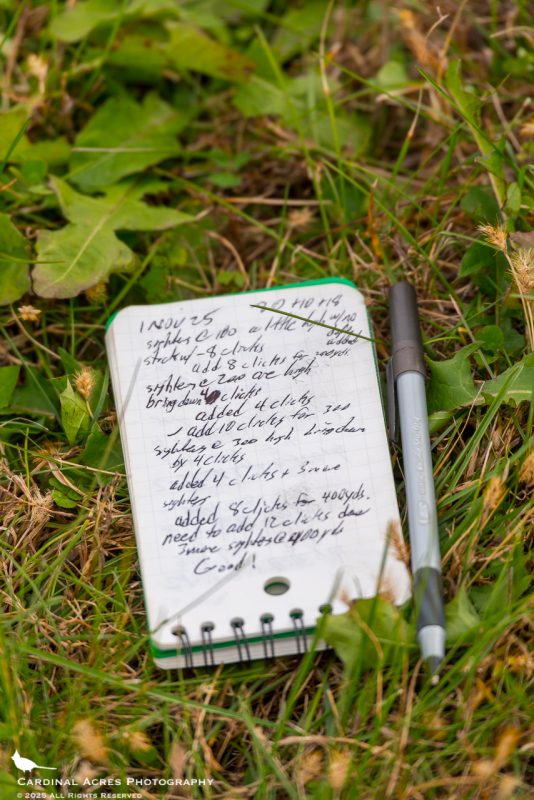 1 NOV 25 20 +10 +18
sighters @ 100 a little high w/no
stick w/ - 8 clicks added
add 8 clicks for 200yds.
sighters @ 200 are high
bring down 4 clicks
added 4 clicks
add 10 clicks for 300
sighters @ 300 high bring down
by 4 clicks
added 4 clicks + 3 more
sighters
added 8 clicks for 400yds.
need to add 12 clicks
3 more sighters @ 400 yds
Good!
CARDINAL ACRES PHOTOGRAPHY
© 2025 ALL RIGHTS RESERVED